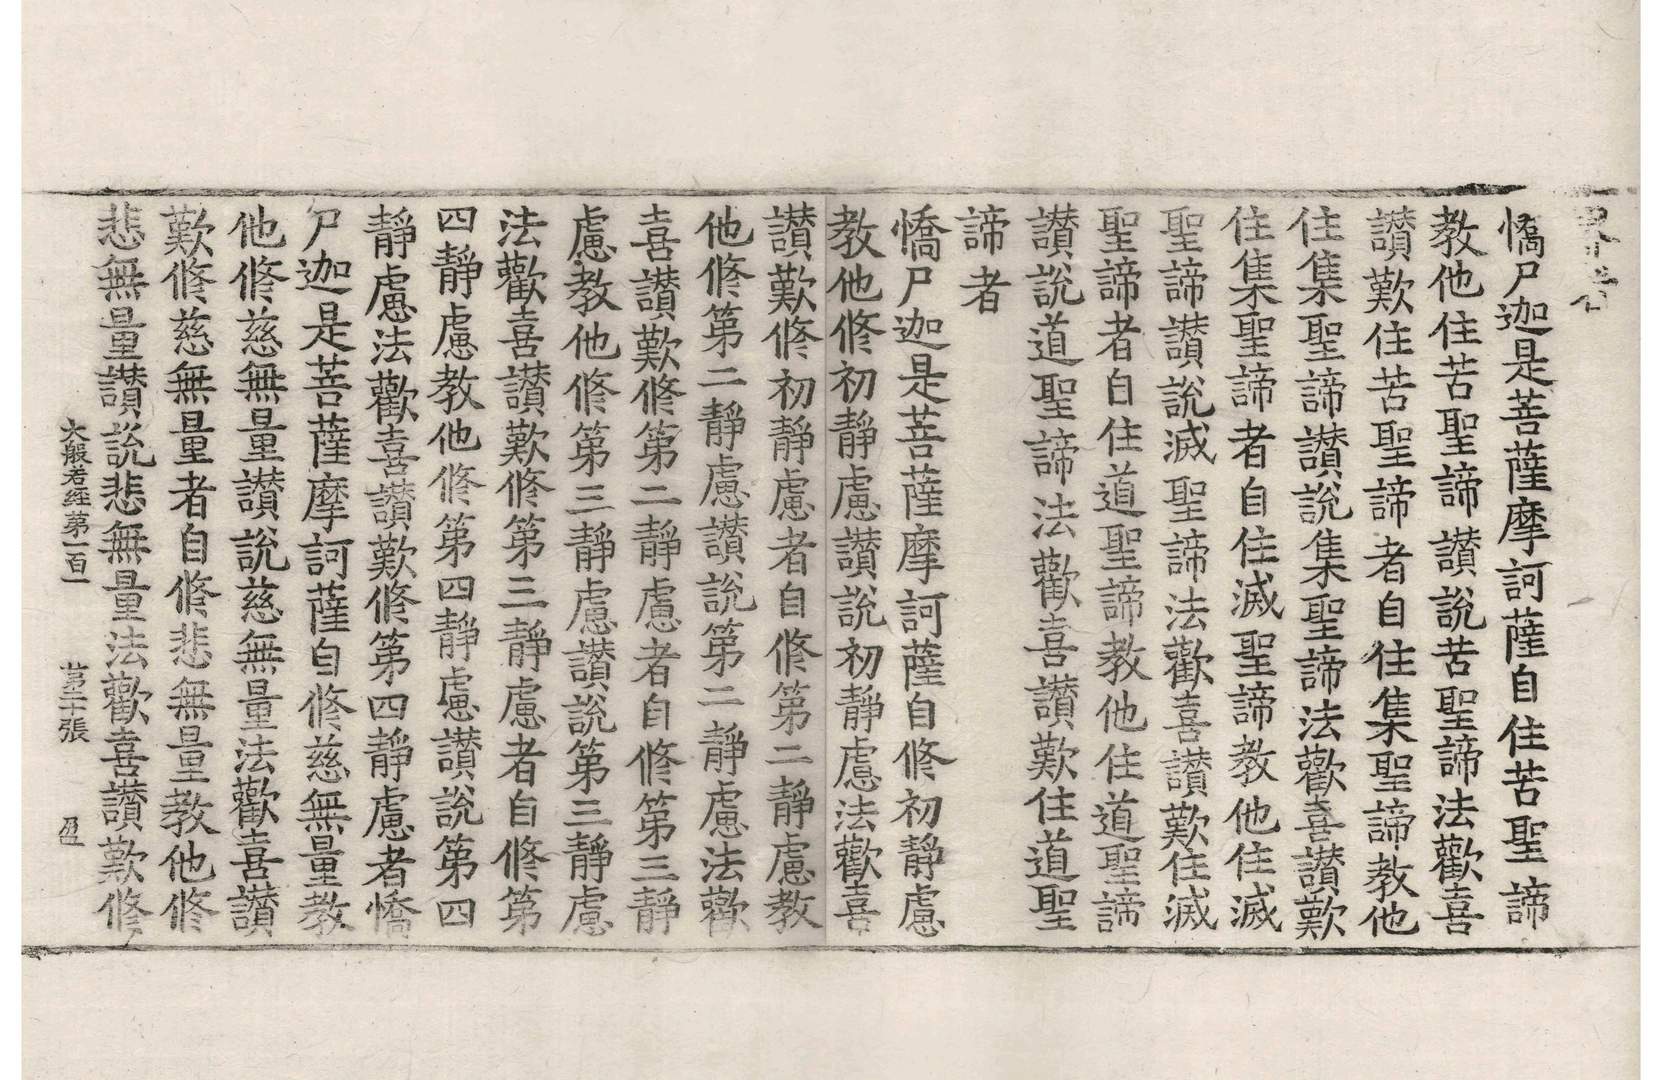 憍尸迦是菩薩摩訶薩自住苦聖諦
教他住苦聖諦讃說苦聖諦法歡喜
讃歎住苦聖諦者自住集聖諦教他
住集聖諦讃說集聖諦法歡喜讃歎
住集聖諦者自住滅聖諦教他住滅
聖諦讃說滅聖諦法歡喜讃歎住滅
聖諦者自住道聖諦教他住道聖諦
讃說道聖諦法歡喜讃歎住道聖
諦者
憍尸迦是菩薩摩訶薩自修初靜慮
教他修初靜慮讃說初靜慮法歡喜
讃歎修初靜慮者自修第二靜慮教
他修第二靜慮讃說第二靜慮法歡
喜讃歎修第二靜慮者自修第三靜
慮教他修第三靜慮讃說第三靜慮
法歡喜讃歎修第三靜慮者自修第
四靜慮教他修第四靜慮讃說第四
靜慮法歡喜讃歎修第四靜慮者憍
尸迦是菩薩摩訶薩自修慈無量教
他修慈無量讃說慈無量法歡喜讃
歎修慈無量者自修悲無量教他修
悲無量讃說悲無量法歡喜讃歎修
大般若經第一百一 第二十張 盈